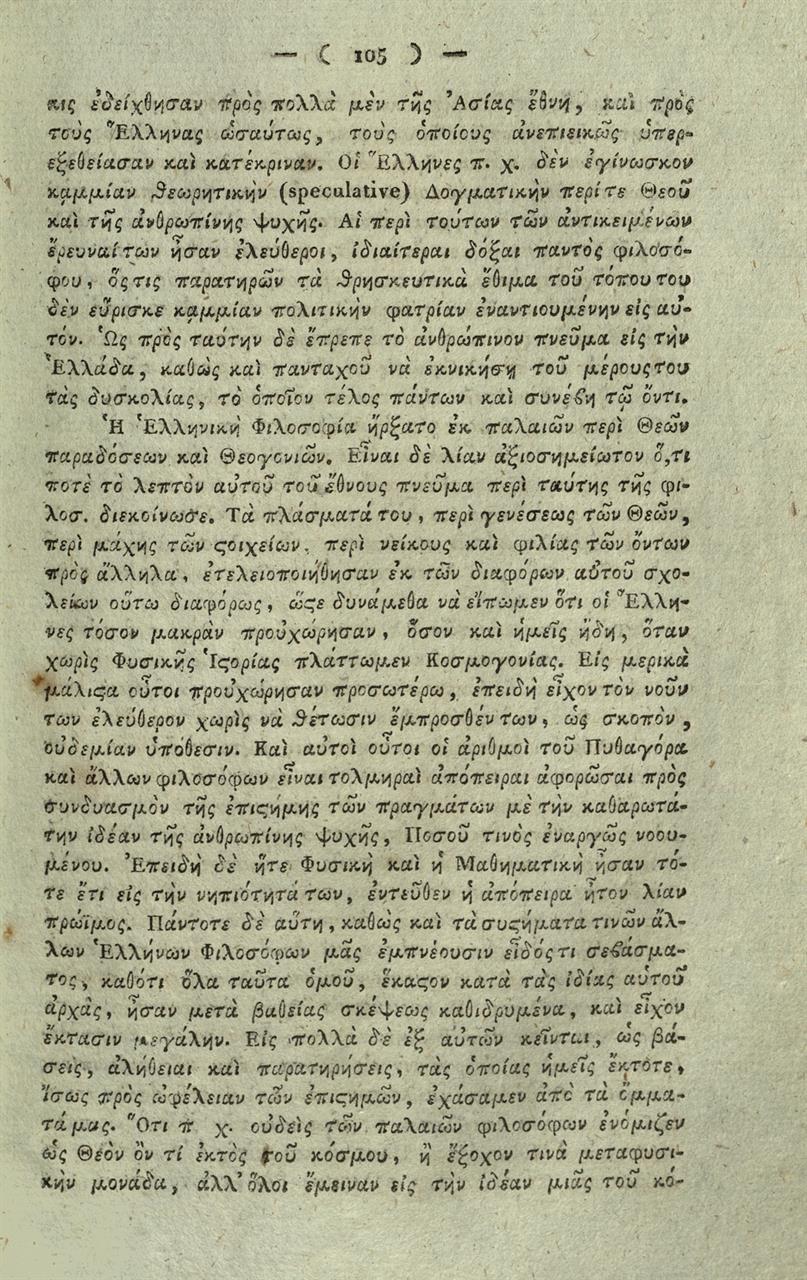 — ( 105 ) —
κις ἐδείχθησαν πρὸς πολλὰ μὲν τῆς Ἀσίας ἔθνη, καὶ πρὸς
τοὺς Ἕλληνας ὡσαύτως, τοὺς ὁποίους ἀνεπιεικῶς ὑπερ-
εξεθείασαν καὶ κατέκριναν. Οἱ Ἕλληνες π. χ. δὲν ἐγίνωσκον
καμμίαν θεωρητικὴν (speculative) Δογματικὴν περίτε Θεοῦ
καὶ τῆς ἀνθρωπίνης ψυχῆς. Αἱ περὶ τούτων τῶν ἀντικειμένων
ἔρευναίτων ἦσαν ἐλεύθεροι, ἰδιαίτεραι δόξαι παντὸς φιλοσό-
φου, ὅςτις παρατηρῶν τὰ θρησκευτικὰ ἔθιμα τοῦ τόπουτου
δὲν εὕρισκε καμμίαν πολιτικὴν φατρίαν ἐναντιουμένην εἰς αὐ-
τόν. Ὡς πρὸς ταύτην δὲ ἔπρεπε τὸ ἀνθρώπινον πνεῦμα εἰς τὴν
Ἑλλάδα, καθὼς καὶ πανταχοῦ νὰ ἐκνικήσῃ τοῦ μέρουςτου
τὰς δυσκολίας, τὸ ὁποῖον τέλος πάντων καὶ συνέϐη τῷ ὄντι.
Ἡ Ἑλληνικὴ Φιλοσοφία ἤρξατο ἐκ παλαιῶν περὶ Θεῶν
παραδόσεων καὶ Θεογονιῶν. Εἶναι δὲ λίαν ἀξιοσημείωτον ὅ,τι
ποτὲ τὸ λεπτὸν αὐτοῦ τοῦ ἔθνους πνεῦμα περὶ ταύτης τῆς φι-
λοσ. διεκοίνωσε. Τὰ πλάσματάτου, περὶ γενέσεως τῶν Θεῶν,
περὶ μάχης τῶν ϛοιχείων, περὶ νείκους καὶ φιλίας τῶν ὄντων
πρὸς ἄλληλα, ἐτελειοποιήθησαν ἐκ τῶν διαφόρων αὐτοῦ σχο-
λείων οὕτω διαφόρως, ὥϛε δυνάμεθα νὰ εἴπωμεν ὅτι οἱ Ἕλλη-
νες τόσον μακρὰν προὐχώρησαν, ὅσον καὶ ἡμεῖς ἤδη, ὅταν
χωρὶς Φυσικῆς Ἱϛορίας πλάττωμεν Κοσμογονίας. Εἰς μερικὰ
μάλιϛα οὗτοι προὐχώρησαν προσωτέρω, ἐπειδὴ εἶχον τὸν νοῦν
των ἐλεύθερον χωρὶς νὰ θέτωσιν ἔμπροσθέν των, ὡς σκοπὸν,
οὐδεμίαν ὑπόθεσιν. Καὶ αὐτοὶ οὗτοι οἱ ἀριθμοὶ τοῦ Πυθαγόρα
καὶ ἄλλων φιλοσόφων εἶναι τολμηραὶ ἀπόπειραι ἀφορῶσαι πρὸς
συνδυασμὸν τῆς ἐπιϛήμης τῶν πραγμάτων μὲ τὴν καθαρωτά-
την ἰδέαν τῆς ἀνθρωπίνης ψυχῆς, Ποσοῦ τινὸς ἐναργῶς νοου-
μένου. Ἐπειδὴ δὲ ἥτε Φυσικὴ καὶ ἡ Μαθηματικὴ ἦσαν τό-
τε ἔτι εἰς τὴν νηπιότητά των, ἐντεῦθεν ἡ ἀπόπειρα ἦτον λίαν
πρώϊμος. Πάντοτε δὲ αὕτη, καθὼς καὶ τὰ συϛήματα τινῶν ἄλ-
λων Ἑλλήνων Φιλοσόφων μᾶς ἐμπνέουσιν εἶδός τι σεϐάσμα-
τος, καθότι ὅλα ταῦτα ὁμοῦ, ἕκαϛον κατὰ τὰς ἰδίας αὑτοῦ
ἀρχὰς, ἦσαν μετὰ βαθείας σκέψεως καθιδρυμένα, καὶ εἶχον
ἔκτασιν μεγάλην. Εἰς πολλὰ δὲ ἐξ αὐτῶν κεῖνται, ὡς βά-
σεις, ἀλήθειαι καὶ παρατηρήσεις, τὰς ὁποίας ἡμεῖς ἔκτοτε,
ἴσως πρὸς ὠφέλειαν τῶν ἐπιϛημῶν, ἐχάσαμεν ἀπὸ τὰ ὄμμα-
τά μας. Ὅτι π χ. οὐδεὶς τῶν παλαιῶν φιλοσόφων ἐνόμιζεν
ὡς Θεὸν ὂν τί ἐκτὸς τοῦ κόσμου, ἢ ἔξοχον τινὰ μεταφυσι-
κὴν μονάδα, ἀλλ' ὅλοι ἔμειναν εἰς τὴν ἰδέαν μιᾶς τοῦ κό-